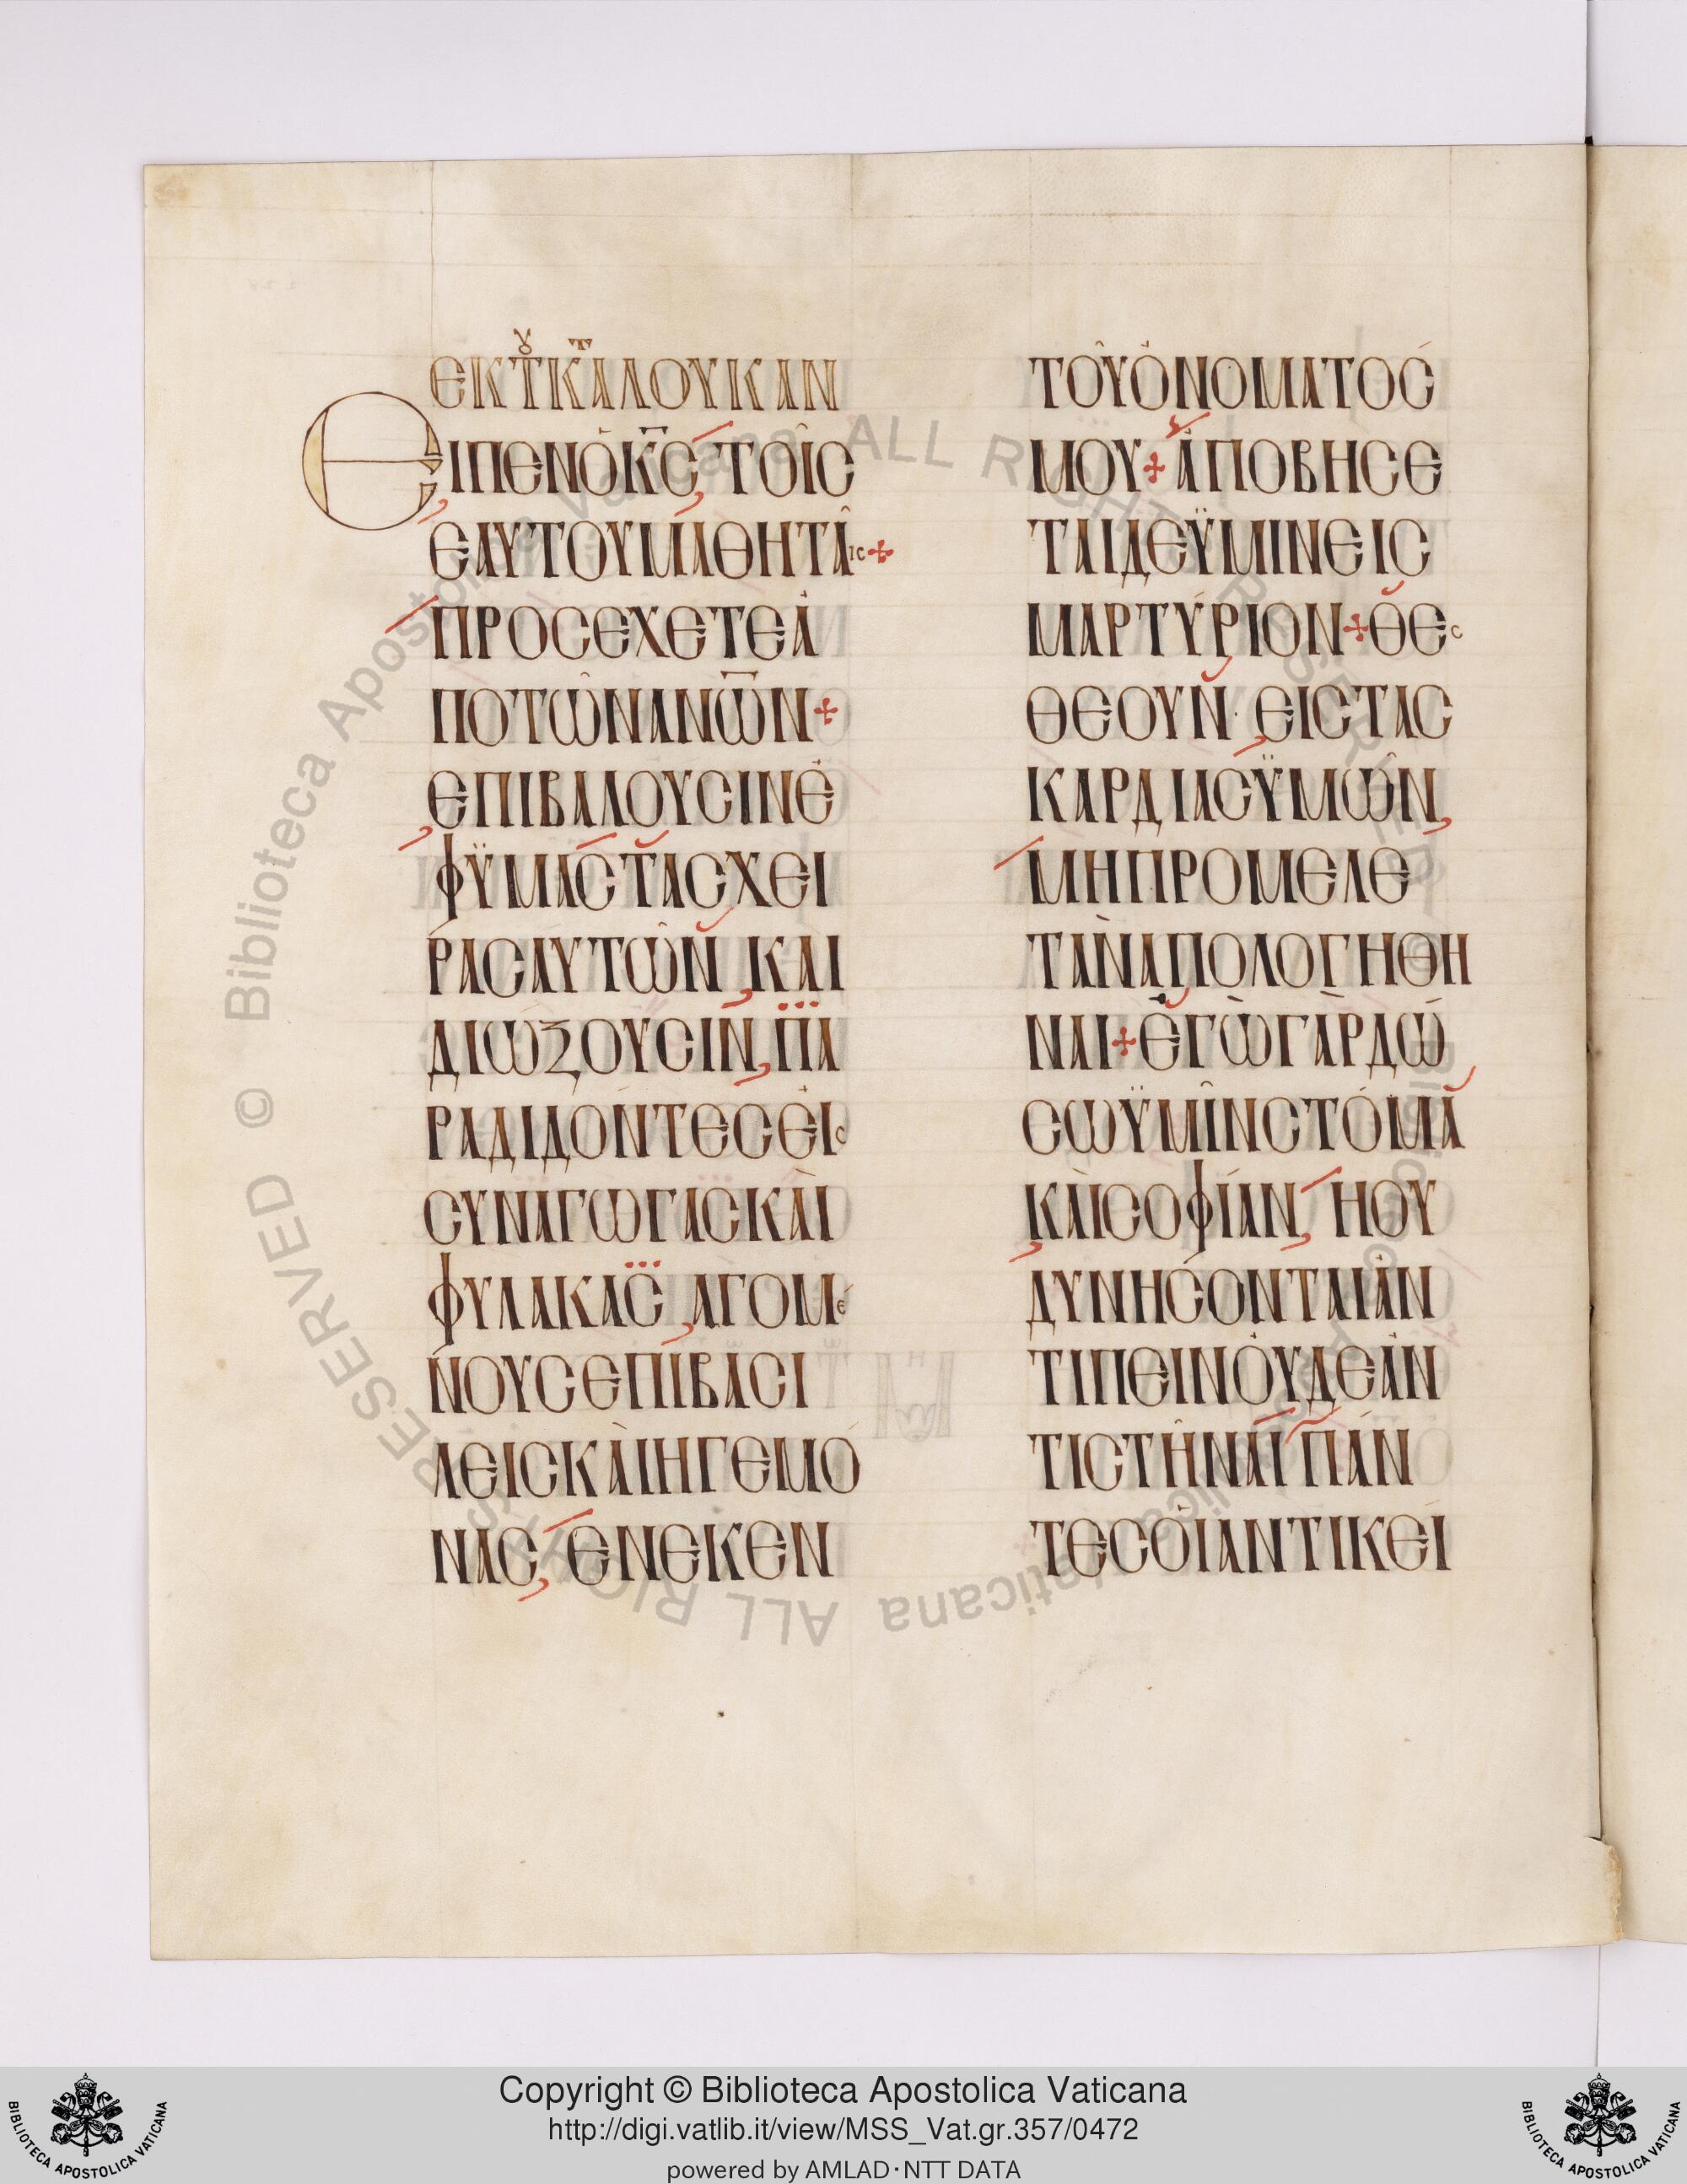 ΕΚ ΤΟΥ ΚΑΤΑ ΛΟΥΚΑΝ
ΕΙΠΕΝ Ὁ Κ̅Σ̅, ΤΟΙ͂Σ
ΕΑΥΤΟΥ ΜΑΘΗΤΑΙ͂Σ+
ΠΡΟΣΕΧΕΤΕ Ἀ
ΠΟ ΤΩ͂Ν ΑΝΩ̅Ν+
ΕΠΙΒΑΛΟΥΣΙΝ Ἐ
Φ ΫΜΑΣ ΤΑΣ ΧΕΙ
ΡΑΣ ΑΥΤΩ͂Ν, ΚΑΙ
ΔΙΩΞΟΥΣΙΝ, ΠΑ
ΡΑΔΙΔΟΝΤΕΣ ΕἸΣ
ΣΥΝΑΓΩΓΑΣ ΚΑῚ
ΦΥΛΑΚΑΣ, ΑΓΟΜΕ
ΝΟΥΣ ΕΠΙ ΒΑΣΙ
ΛΕΙΣ ΚΑῚ ΗΓΕΜΟ
ΝΑΣ, ΕΝΕΚΕΝ
ΤΟΥ͂ ὈΝΟΜΑΤΟΣ
ΜΟΥ+ ἈΠΟΒΗΣΕ
ΤΑΙ ΔΕ ΫΜΙΝ ΕΙΣ
ΜΑΡΤΥΡΙΟΝ+ ΘΕΣ
ΘΕ ΟΥΝ· ΕΙΣ ΤΑΣ
ΚΑΡΔΙΑΣ ΫΜΩ͂Ν,
ΜΗ ΠΡΟΜΕΛΕ
ΤΑΝ ΑΠΟΛΟΓΗΘΗ
ΝΑΙ+ ἘΓῺ ΓᾺΡ ΔΩ
ΣΩ ΫΜΙ͂Ν ΣΤΟΜΑ
ΚΑῚ ΣΟΦΙΑΝ, Η ΟΥ
ΔΥΝΗΣΟΝΤΑΙ ἈΝ
ΤΙΠΕΙΝ ΟΥ̓ΔΕ ἈΝ
ΤΙΣΤΗ͂ΝΑΙ ΠΑΝ
ΤΕΣ ΟἹ ΑΝΤΙΚΕΙ
© Biblioteca Apostolica Vaticana ALL RIGHTS RESERVED
Copyright © Biblioteca Apostolica Vaticana
http://digi.vatlib.it/view/MSS_Vat.gr.357/0472
powered by AMLAD · NTT DATA
BIBLIOTECA APOSTOLICA VATICANA
BIBLIOTECA APOSTOLICA VATICANA